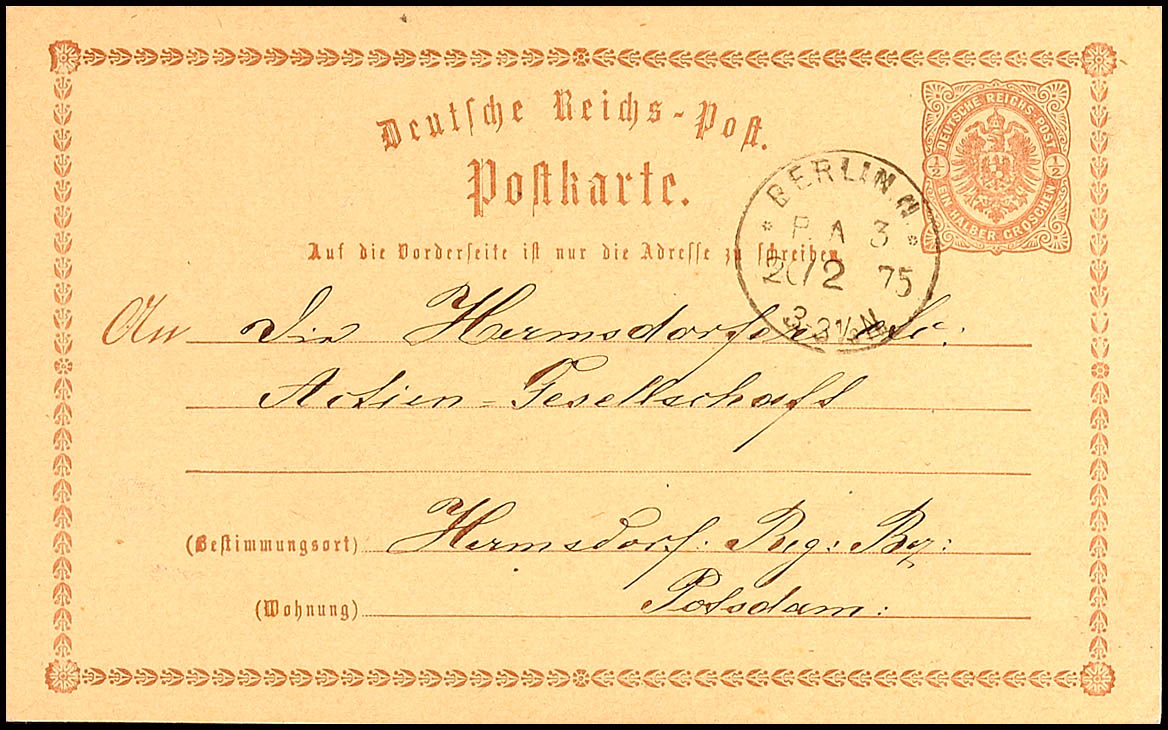 Deutsche Reichs-Post.
Postkarte.
DEUTSCHE REICHS-POST
1/2 1/2
EIN HALBER GROSCHEN
Auf die Vorderseite ist nur die Adresse zu schreiben.
BERLIN.N.
* P. A 3 *
20/2 75
3-3½N
An Die Hermsdorfer
Actien-Gesellschaft
(Bestimmungsort) Hermsdorf. Reg: Bez:
(Wohnung) Potsdam: